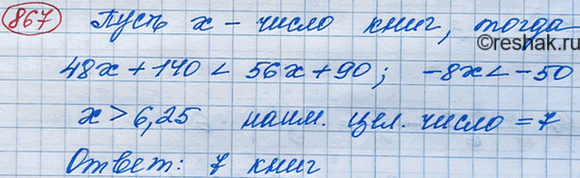 867 Пусть x – число книг, тогда
©reshak.ru
48x + 140 < 56x + 90; -8x < -50
x > 6,25 наим. цел. число = 7
Ответ: 7 книг